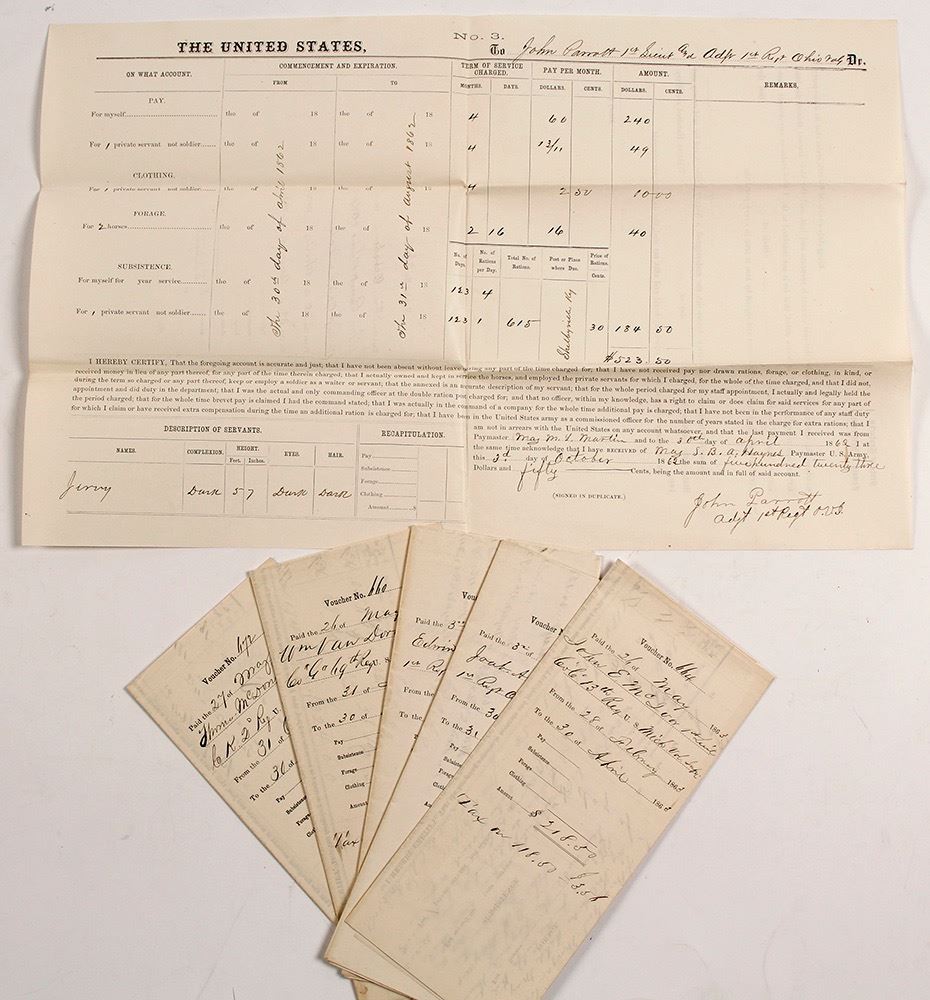 No. 3.
THE UNITED STATES, To John Parrott 1st Lieut and Adjt 1st Regt Ohio Vols Dr.
ON WHAT ACCOUNT. COMMENCEMENT AND EXPIRATION. TERM OF SERVICE CHARGED. PAY PER MONTH. AMOUNT. REMARKS.
FROM TO MONTHS. DAYS. DOLLARS. CENTS. DOLLARS. CENTS.
PAY.
For myself the of 18 the of 18 4 60 240
For 1 private servant not soldier the of 18 the of 18 4 49
CLOTHING.
For 1 private servant not soldier the of 18 the of 18 4 2 50 10 00
FORAGE.
For 2 horses the of 18 the of 18 2 16 16 40
The 30th day of april 1862
The 31st day of august 1862
No. of Days. No. of Rations per Day. Total No. of Rations. Post or Place where Due. Price of Rations. Cents.
SUBSISTENCE.
For myself for year service the of 18 the of 18 123 4
For 1 private servant not soldier the of 18 the of 18 123 1 615 30 184 50
Shelbyville Ky
$523.50
I HEREBY CERTIFY, That the foregoing account is accurate and just; that I have not been absent without leave during any part of the time charged for; that I have not received pay nor drawn rations, forage, or clothing, in kind, or
received money in lieu of any part thereof, for any part of the time therein charged; that I actually owned and kept in service the horses, and employed the private servants for which I charged, for the whole of the time charged, and that I did not,
during the term so charged or any part thereof, keep or employ a soldier as a waiter or servant; that the annexed is an accurate description of my servant; that for the whole period charged for my staff appointment, I actually and legally held the
appointment and did duty in the department; that I was the actual and only commanding officer at the double ration post charged for; and that no officer, within my knowledge, has a right to claim or does claim for said services for any part of
the period charged; that for the whole time brevet pay is claimed I had the command stated; that I was actually in the command of a company for the whole time additional pay is charged; that I have not been in the performance of any staff duty
for which I claim or have received extra compensation during the time an additional ration is charged for; that I have been in the United States army as a commissioned officer for the number of years stated in the charge for extra rations; that I
am not in arrears with the United States on any account whatsoever, and that the last payment I received was from
Paymaster Maj M. L. Martin and to the 30th day of april 1862 I at
the same time acknowledge that I have received of Maj S. B. A. Haynes Paymaster U. S. Army,
this 3d day of October 1862 the sum of five hundred twenty three
Dollars and fifty Cents, being the amount and in full of said account.
(SIGNED IN DUPLICATE.)
John Parrott
Adjt 1st Regt O.V.I.
DESCRIPTION OF SERVANTS.
NAMES. COMPLEXION. HEIGHT. EYES. HAIR.
Feet. Inches.
Dark 5 7 Dark Dark
RECAPITULATION.
Pay
Subsistence
Forage
Clothing
Amount $
Voucher No.
Paid the 27 of May
Co K 2d Reg U.
From the 31 of
To the 30 of
Pay
Subsistence
Forage
Voucher No. 660
Paid the 26 of May
Wm Van Dor
Co G 69th Reg. S
From the 31 of
To the 30 of
Pay
Subsistence
Forage
Clothing
Amount
Tax
Vou
Paid the 3rd
Edwin
1st Reg
From the
To the
Voucher
Paid the 3rd of
1st Regt O
From the 30
To the 31
Pay
Subsistence
Forage
Clothing
Amount
Voucher No. 664
Paid the 26 of May 1863
John E. McDon 1st Lieut
Co C 13th Reg U. S. Mich Vol Inft
From the 28 of Febuary 1863
To the 30 of April 1863
Pay
Subsistence
Forage
Clothing
Amount $218.50
Tax on 118.50 $3.56